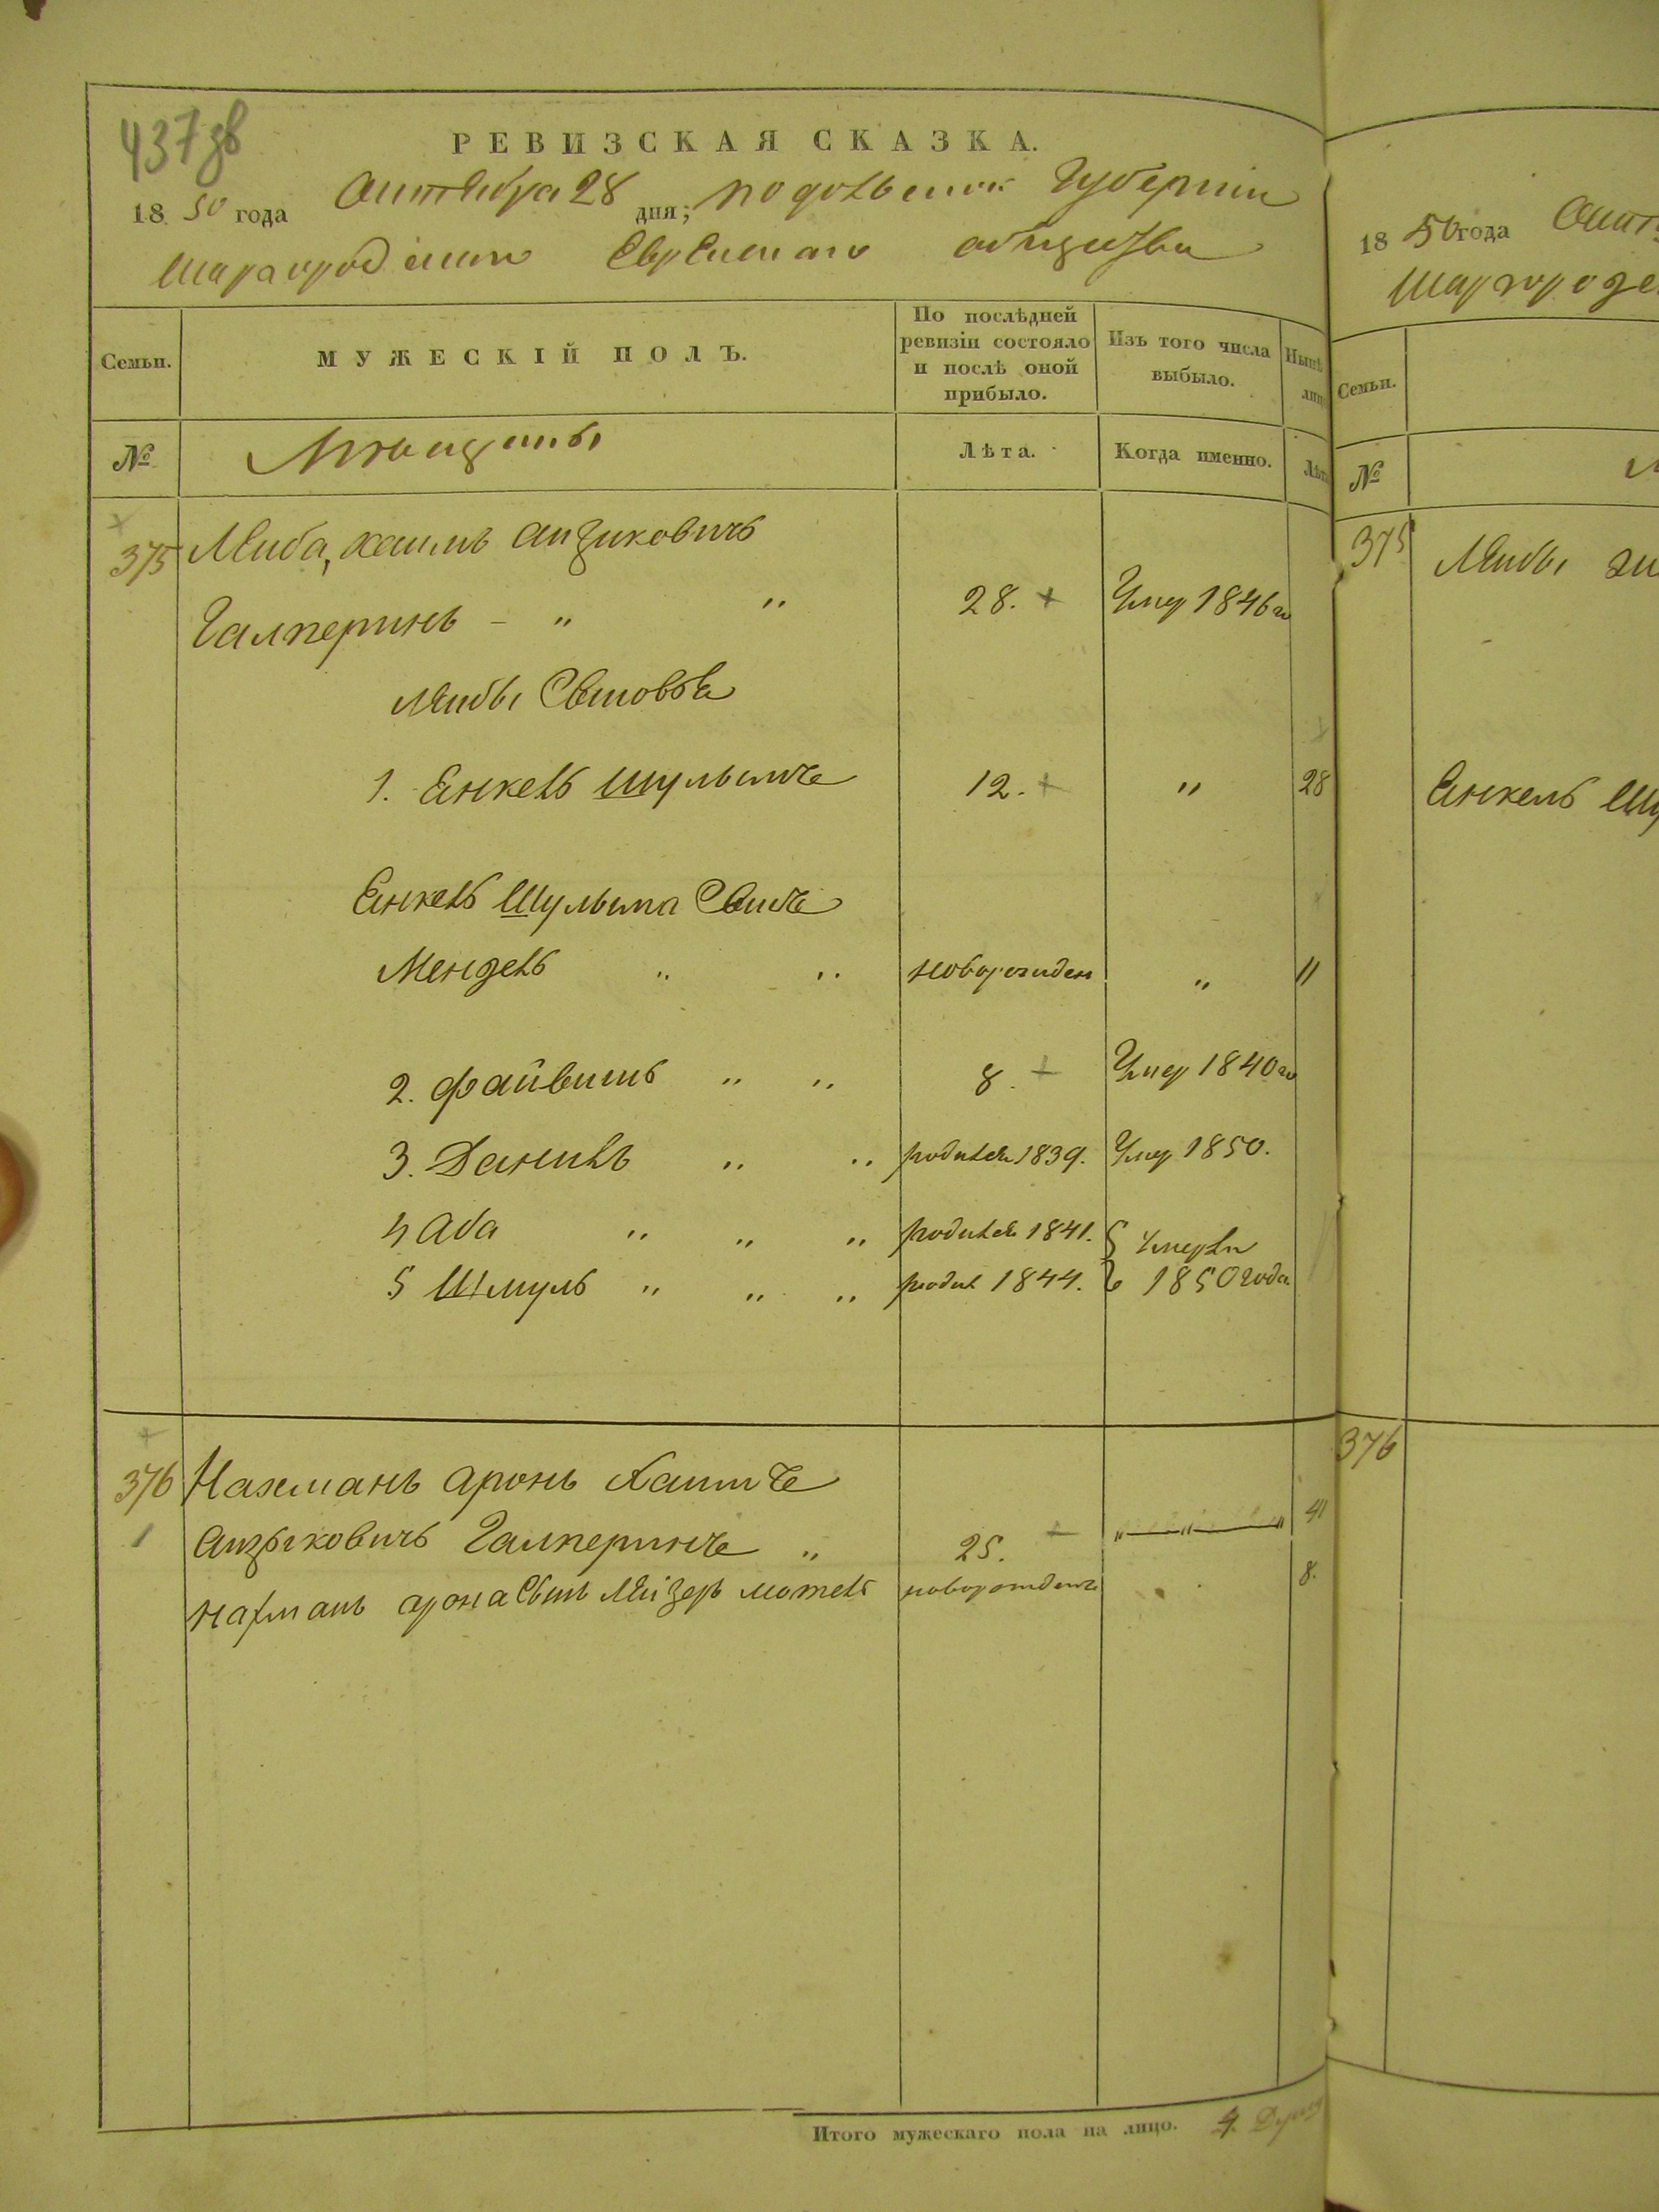 437 зв
РЕВИЗСКАЯ СКАЗКА.
1850 года Октября 28 дня; Подольской Губернии
Шарагородского Еврейского общества
Семьи.
МУЖЕСКІЙ ПОЛЪ.
По послѣдней ревизіи состояло и послѣ оной прибыло.
Изъ того числа выбыло.
Нынѣ лиц
№
Мѣщаны
Лѣта.
Когда именно.
Лѣта
375 Лейба, Хаимъ Айзиковичъ
Галперинъ - " " 28. + Умер 1846 го
Лейбы Сыновья
1. Енкель Шулымъ 12. + " 28
Енкель Шулыма Сынъ
Мендель " " новорожден " 11
2. Файвишъ " " 8. + Умер 1840 го
3. Данилъ " " родился 1839. Умер 1850.
4 Аба " " " родился 1841. Умерли
5 Шмуль " " " родил 1844. 1850 года
376 Нахманъ Аронъ Хаимъ
1 Айзыковичъ Галперинъ " 25. + "—"—" 41
Нахмана Арона Сынъ Лейзеръ Мотель новорожденъ 8.
Итого мужескаго пола на лицо. 4. Души
1850 года Окт
Шаргородс
Семьи.
№
М
375 Лейбы
Енкель Шу
376